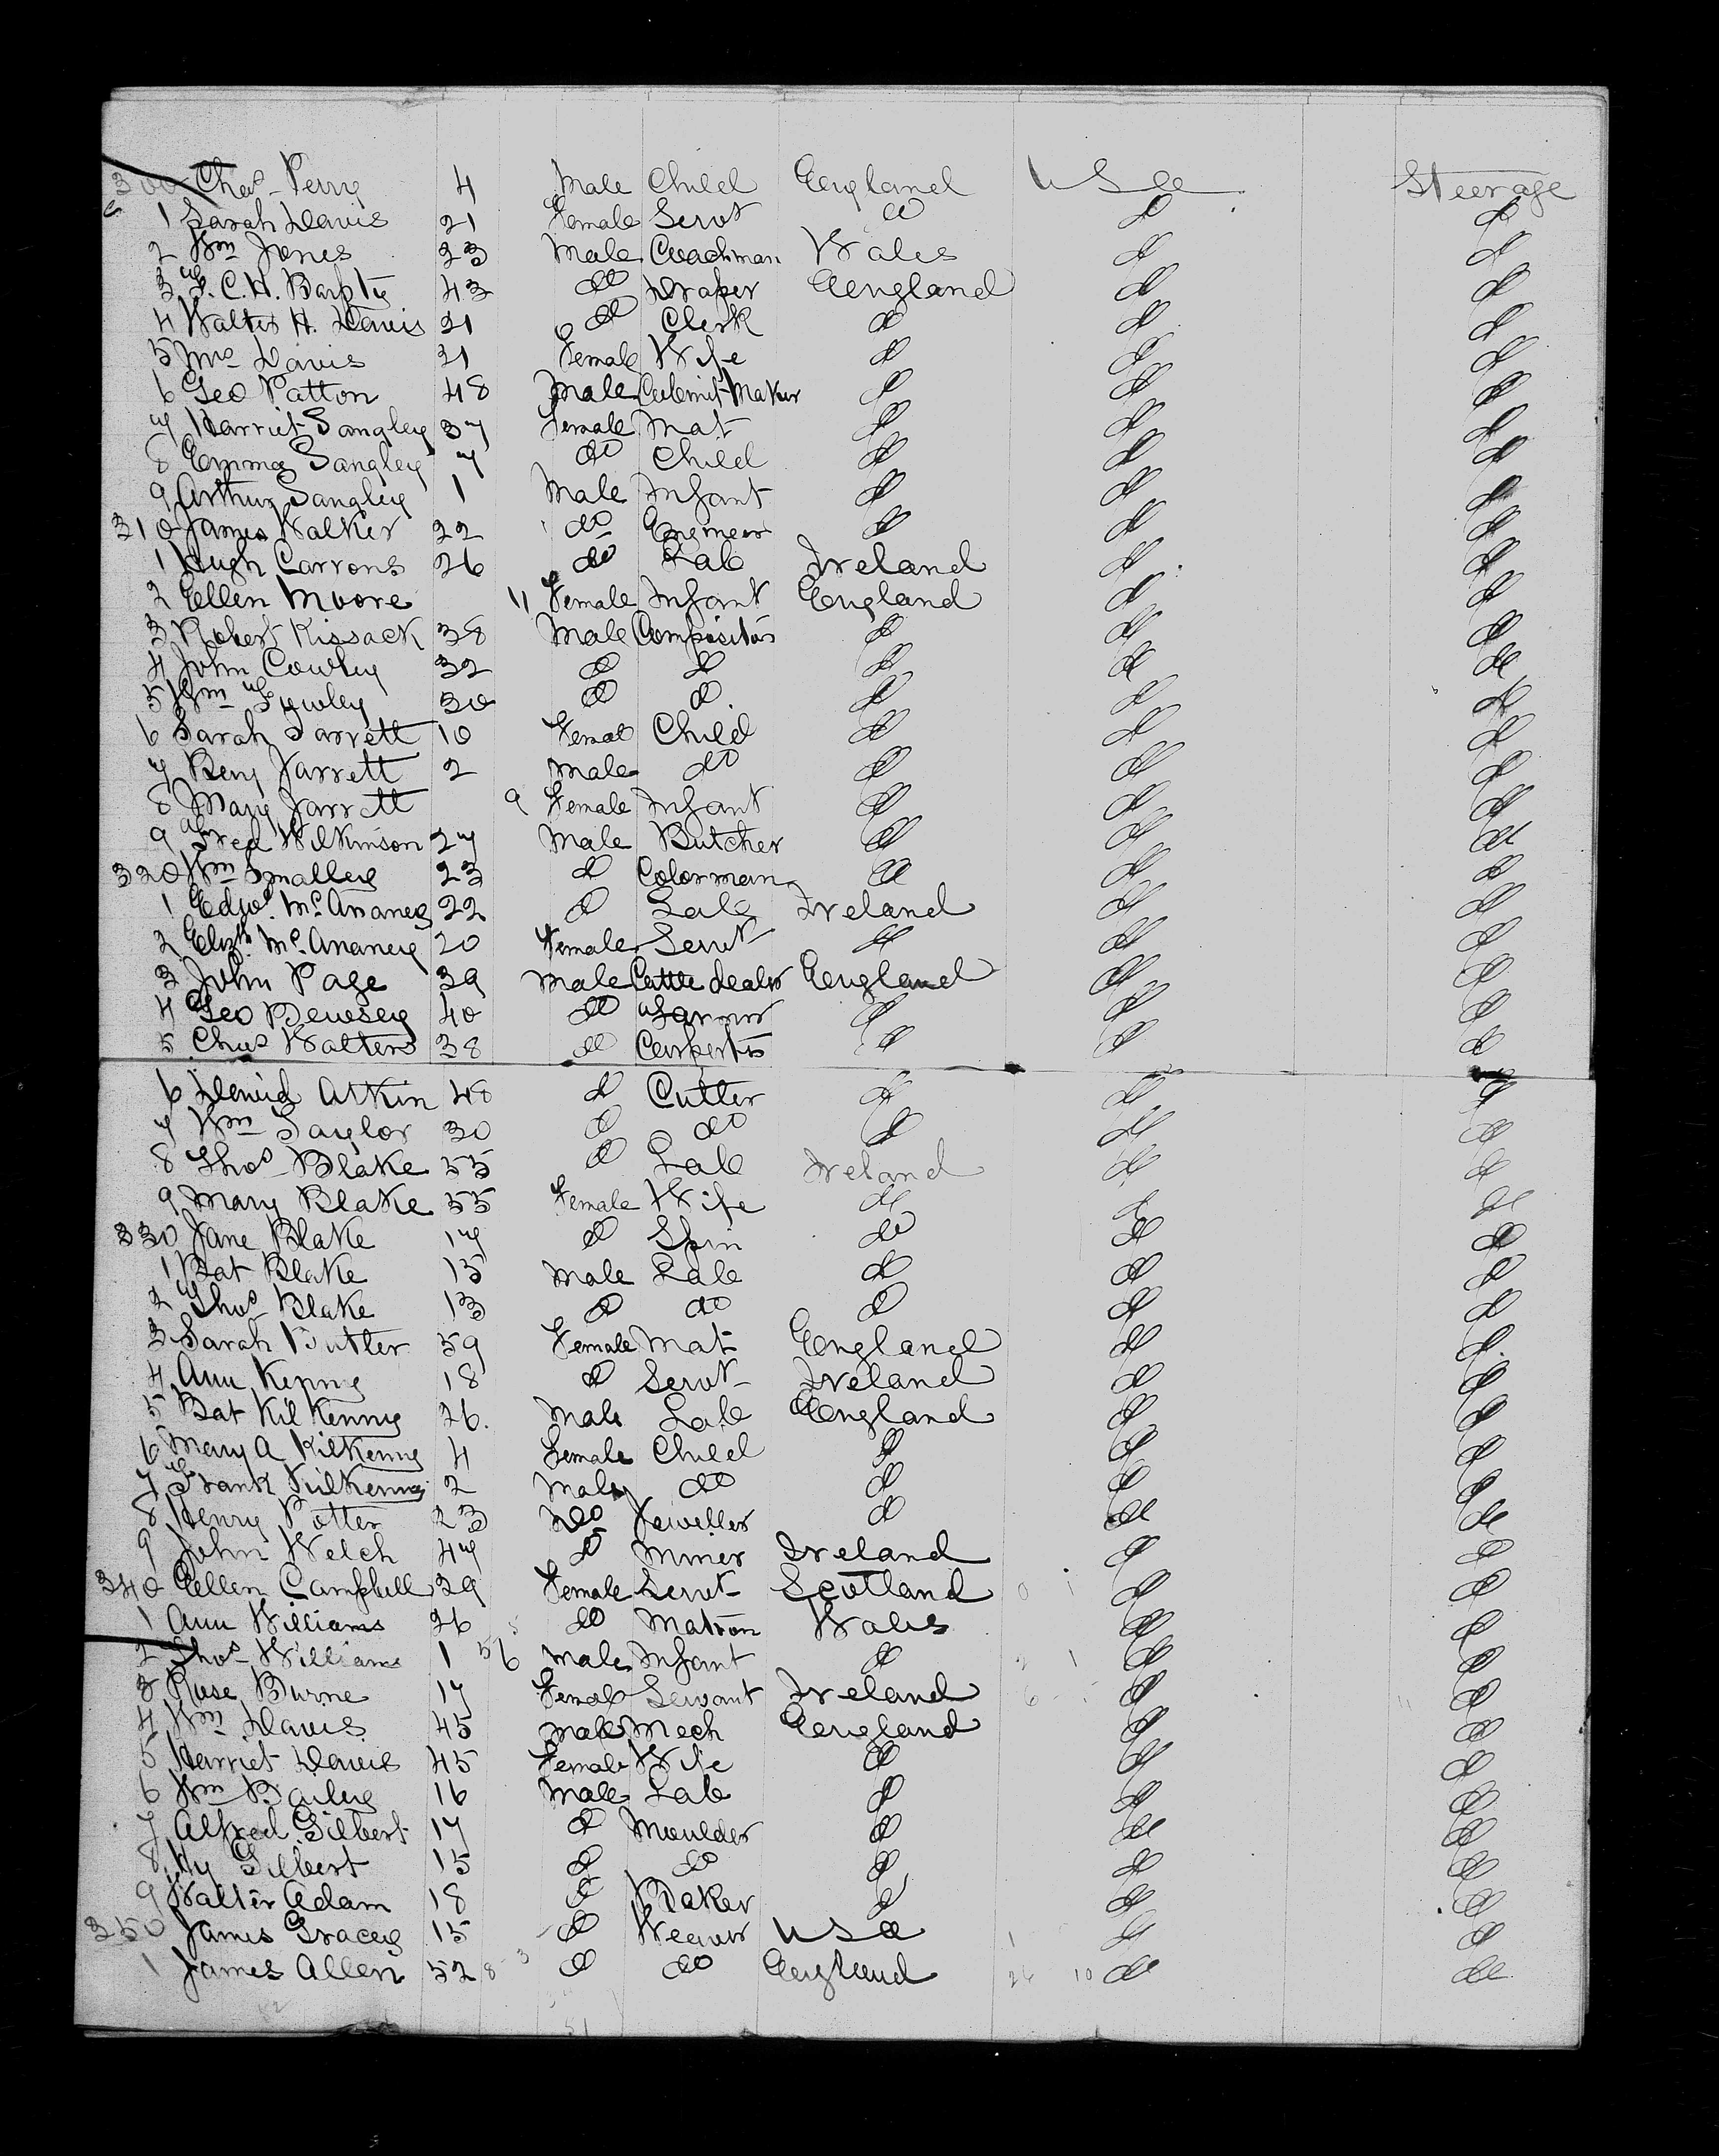 300 Chas Perry 4 Male Child England USA Steerage
1 Sarah Davis 21 Female Servt do do do
2 Wm Jones 23 Male Coachman Wales do do
3 F. C. H. 43 do Draper England do do
4 Walter H. Davis 21 do Clerk do do do
5 Mrs Davis 21 Female Wife do do do
6 Geo Patton 48 Male Cabinit Maker do do do
7 Harriet Sangley 37 Female Mat do do do
8 Emma Sangley 7 do Child do do do
9 Arthur Sangley 1 Male Infant do do do
310 James Walker 22 do Engineer do do do
1 Hugh Carrons 26 do Lab Ireland do do
2 Ellen Moore 11 Female Infant England do do
3 Robert Kissack 38 Male Compositor do do do
4 John Cowley 32 do do do do do
5 Wm 30 do do do do do
6 Sarah Jarrett 10 Femal Child do do do
7 Benj Jarrett 2 Male do do do do
8 Mary Jarrett 9 Female Infant do do do
9 Fred Wilkinson 27 Male Butcher do do do
320 Wm Smalley 23 do Colorman do do do
1 Edwd McAnaney 22 do Lab Ireland do do
2 Elizth McAnaney 20 Female Servt do do do
3 John Page 39 Male Cattle dealer England do do
4 Geo Dewsey 40 do Farmer do do do
5 Chas Walters 38 do Carpenter do do do
6 David Atkin 48 do Cutter do do do
7 Wm Taylor 30 do do do do do
8 Thos Blake 55 do Lab Ireland do do
9 Mary Blake 55 Female Wife do do do
330 Jane Blake 17 do Spin do do do
1 Pat Blake 15 Male Lab do do do
2 Thos Blake 13 do do do do do
3 Sarah Butler 59 Female Mat England do do
4 Ann Kenny 18 do Servt Ireland do do
5 Pat Kilkenny 26. Male Lab England do do
6 Mary A Kilkenny 4 Female Child do do do
7 Frank Kilkenny 2 Male do do do do
8 Henry Potter 23 Do Jeweller do do do
9 John Welch 47 do Miner Ireland do do
340 Ellen Campbell 29 Female Servt Scotland do do
1 Ann Williams 26 do Matron Wales do do
2 Thos Williams 1 Male Infant do do do
3 Rose Burne 17 Female Servant Ireland do do
4 Wm Davis 45 Male Mech England do do
5 Harriet Davis 45 Female Wife do do do
6 Wm Bailey 16 Male Lab do do do
7 Alfred Gilbert 17 do Moulder do do do
8 Hy Gilbert 15 do do do do do
9 Walter Adam 18 do Baker do do do
350 James Gracey 15 do Weaver USA do do
1 James Allen 52 do do England do do